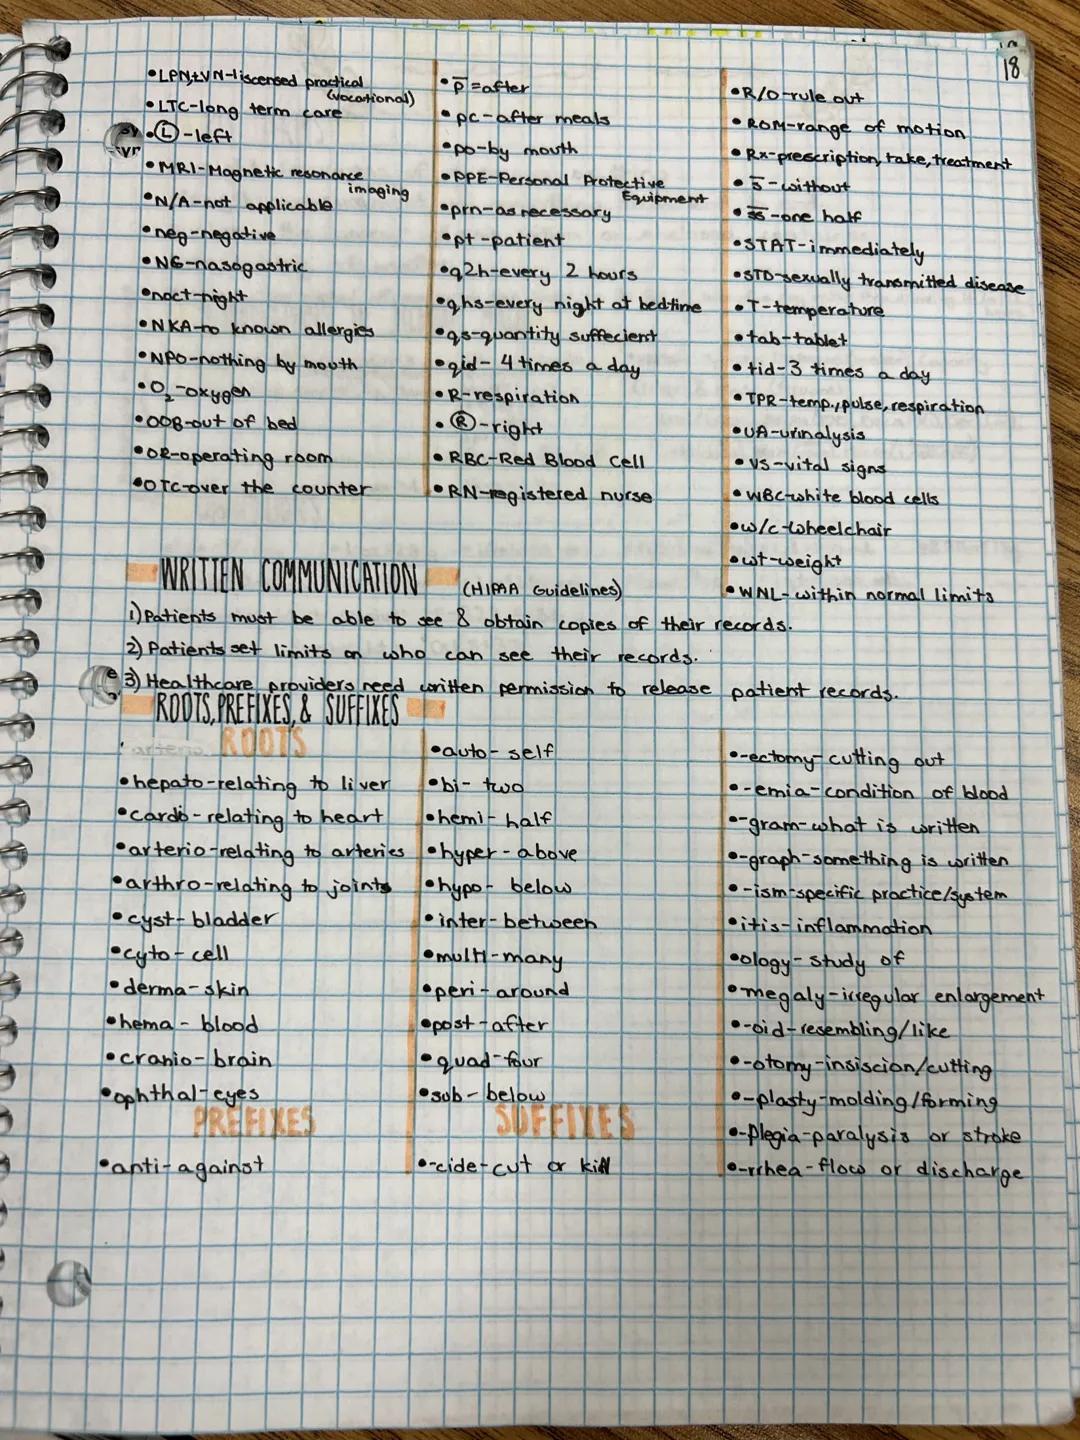 18
•LPN,LVN-liscensed practical
(vocational)
•LTC-long term care
•Ⓛ-left
•MRI-Magnetic resonance
imaging
•N/A-not applicable
•neg-negative
•NG-nasogastric
•noct-night
•NKA-no known allergies
•NPO-nothing by mouth
•O₂-oxygen
•OOB-out of bed
•OR-operating room
•OTC-over the counter
•p̅=after
•pc-after meals
•po-by mouth
•PPE-Personal Protective
Equipment
•prn-as necessary
•pt-patient
•q2h-every 2 hours
•qhs-every night at bedtime
•qs-quantity suffecient
•qid- 4 times a day
•R-respiration
•Ⓡ-right
•RBC-Red Blood Cell
•RN-registered nurse
•R/O-rule out
•ROM-range of motion
•Rx-prescription, take, treatment
•s̅-without
•s̅s̅-one half
•STAT-immediately
•STD-sexually transmitted disease
•T-temperature
•tab-tablet
•tid-3 times a day
•TPR-temp., pulse, respiration
•UA-urinalysis
•VS-vital signs
•WBC-white blood cells
•w/c-wheelchair
•wt-weight
•WNL-within normal limits
WRITTEN COMMUNICATION (HIPAA Guidelines)
1) Patients must be able to see & obtain copies of their records.
2) Patients set limits on who can see their records.
3) Healthcare providers need written permission to release patient records.
ROOTS, PREFIXES, & SUFFIXES
arterio ROOTS
•hepato-relating to liver
•cardio-relating to heart
•arterio-relating to arteries
•arthro-relating to joints
•cyst-bladder
•cyto-cell
•derma-skin
•hema-blood
•cranio-brain
•ophthal-eyes
PREFIXES
•anti-against
•auto-self
•bi-two
•hemi-half
•hyper-above
•hypo-below
•inter-between
•multi-many
•peri-around
•post-after
•quad-four
•sub-below
SUFFIXES
•-cide-cut or kill
•-ectomy-cutting out
•-emia-condition of blood
•-gram-what is written
•-graph-something is written
•-ism-specific practice/system
•itis-inflammation
•ology-study of
•megaly-irregular enlargement
•-oid-resembling/like
•-otomy-insiscion/cutting
•-plasty-molding/forming
•-Plegia-paralysis or stroke
•-rrhea-flow or discharge